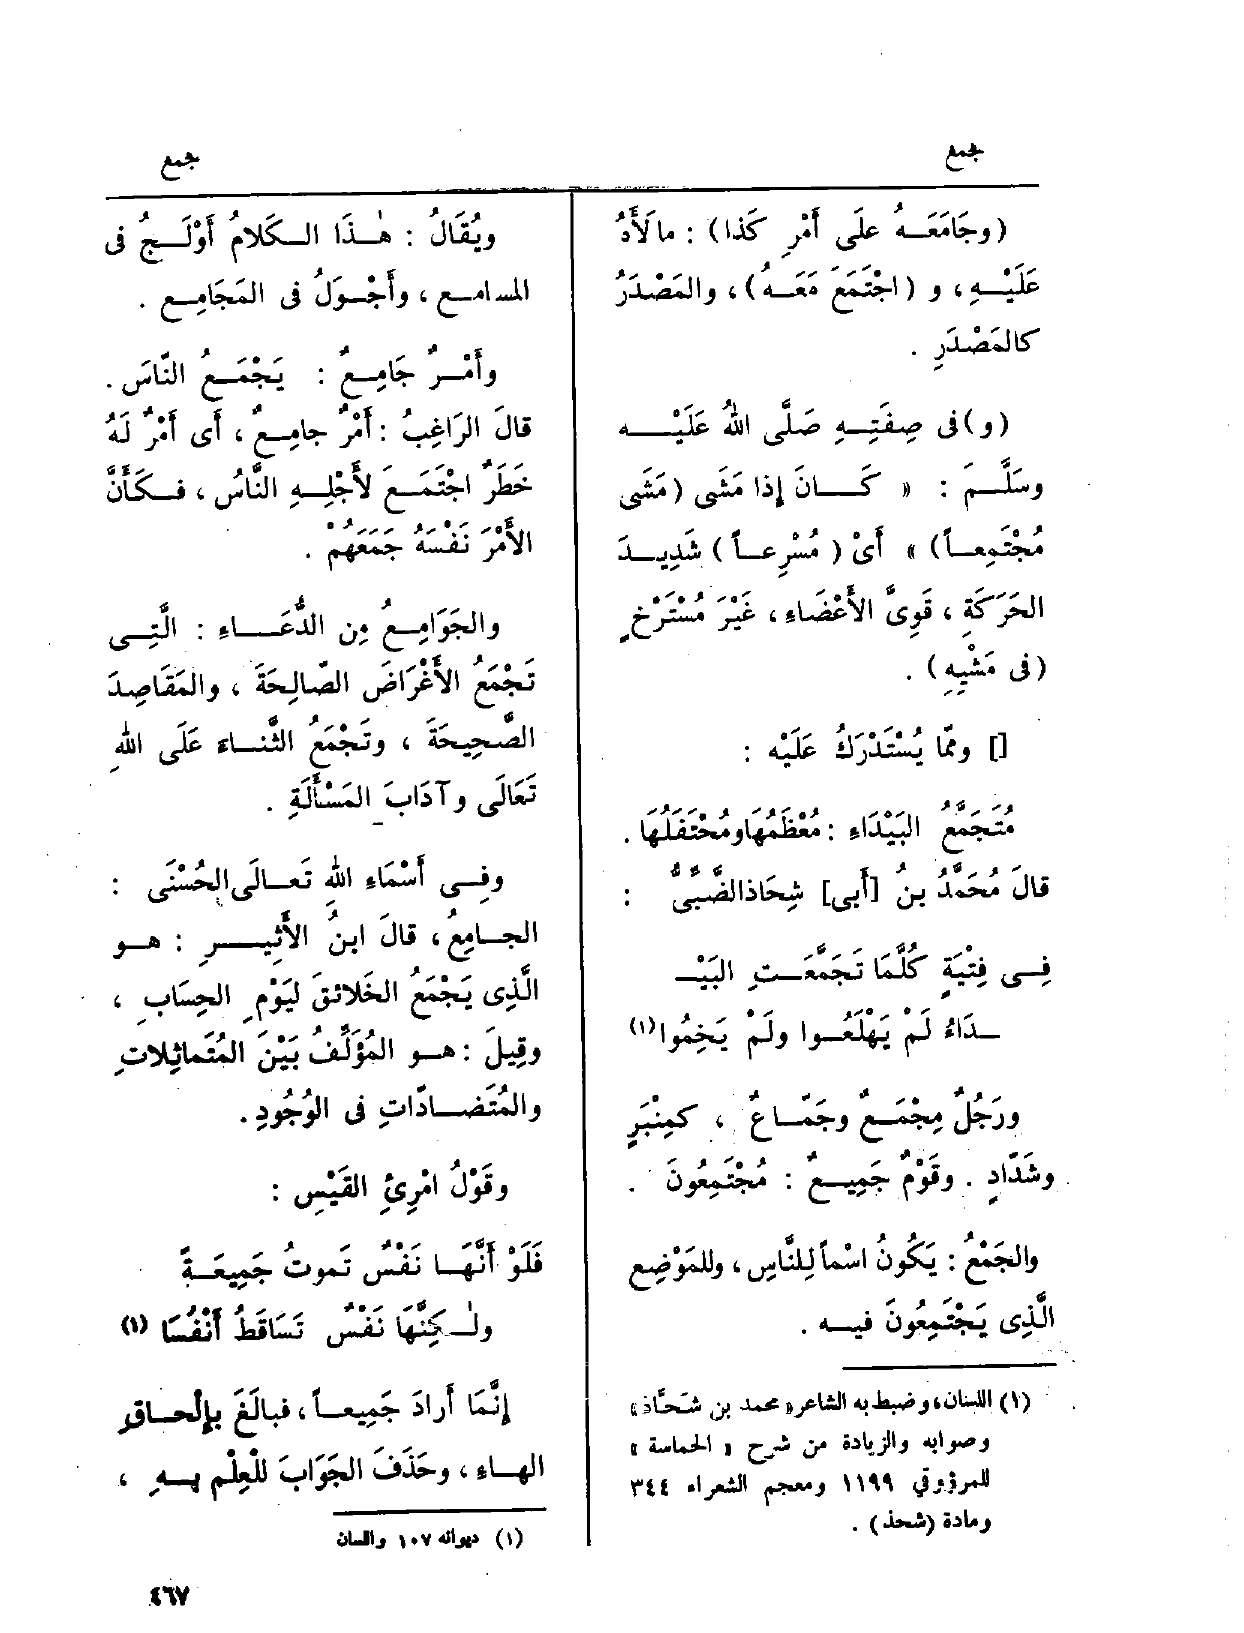 جمع
جمع
(وجَامَعَــهُ علَى أَمْرِ كَذا) : مالَأَهُ
عَلَيْــهِ، و (اجْتَمَعَ مَعَــهُ)، والمَصْدَرُ
كالمَصْدَرِ .
(و)فى صِفَتِــهِ صَلَّى اللهُ عَلَيْــه
وسَلَّــمَ : « كَــانَ إِذا مَشَى (مَشَى
مُجْتَمِعــاً) » أَىْ (مُسْرِعــاً) شَدِيــدَ
الحَرَكَةِ ، قَوِىَّ الأَعْضَاءِ ، غَيْرَ مُسْتَرْخٍ
(فى مَشْيِهِ) .
[] وممّا يُسْتَدْرَكُ عَلَيْه :
مُتَجَمَّعُ البَيْدَاءِ : مُعْظَمُهَا ومُحْتَفَلُهَا .
قالَ مُحَمَّدُ بنُ [أَبى] شِحَاذ الضَّبِّىُّ :
فِــى فِتْيَةٍ كُلَّمَا تَجَمَّعَــتِ البَيْــ
ــدَاءُ لَمْ يَهْلَعُــوا ولَمْ يَخِمُوا (١)
ورَجُلٌ مِجْمَــعٌ وجَمّــاعٌ ، كمِنْبَرٍ
وشَدّادٍ . وقَوْمٌ جَمِيــعٌ : مُجْتَمِعُونَ .
والجَمْعُ : يَكُونُ اسْماً لِلنَّاسِ ، وللمَوْضِعِ
الَّذِى يَجْتَمِعُونَ فيــه .
(١) اللسان، وضبط به الشاعر « محمد بن شَحَّاذ »
وصوابه والزيادة من شرح « الحماسة »
للمرزوقي ١١٩٩ ومعجم الشعراء ٣٤٤
ومادة (شحذ) .
ويُقَالُ : هٰــذَا الــكَلامُ أَوْلَــجُ فى
المسامــع ، وأَجْــوَلُ فى المَجَامِــعِ .
وأَمْــرٌ جَامِــعٌ : يَجْمَــعُ النّاسَ .
قالَ الرّاغِبُ : أَمْرٌ جامِــعٌ ، أَى أَمْرٌ لَهُ
خَطَرٌ اجْتَمَــعَ لأَجْلِــهِ النَّاسُ ، فــكَأَنَّ
الأَمْرَ نَفْسَهُ جَمَعَهُمْ .
والجَوَامِــعُ مِن الدُّعَــاءِ : الَّتِــى
تَجْمَعُ الأَغْرَاضَ الصّالِحَةَ ، والمَقَاصِدَ
الصَّحِيحَةَ ، وتَجْمَعُ الثَّنــاءَ عَلَى اللهِ
تَعَالَى وآدَابَ المَسْأَلَةِ .
وفِــى أَسْمَاءِ اللهِ تَعــالَى الحُسْنَى :
الجــامِعُ، قالَ ابنُ الأَثِيــرِ : هــو
الَّذِى يَجْمَعُ الخَلائقَ لِيَوْمِ الحِسَابِ ،
وقِيلَ : هــو المُؤَلِّفُ بَيْنَ المُتَماثِلاتِ
والمُتَضــادّاتِ فى الوُجُودِ .
وقَوْلُ امْرِئِ القَيْسِ :
فَلَوْ أَنَّهَــا نَفْسٌ تَموتُ جَمِيعَــةً
ولٰــكِنَّهَا نَفْسٌ تَسَاقَطُ أَنْفُسَا (١)
إِنَّمَا أَرادَ جَمِيعــاً ، فبالَغَ بإِلْحــاقِ
الهــاءِ ، وحَذَفَ الجَوَابَ لِلْعِلْمِ بــهِ ،
(١) ديوانه ١٠٧ واللسان
٤٦٧